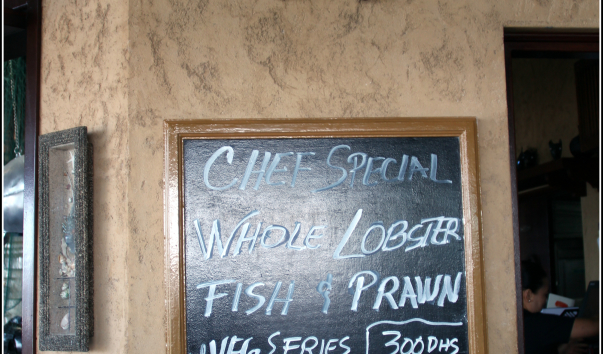 CHEF SPECIAL
WHOLE LOBSTER
FISH & PRAWN
SERIES 300DHS